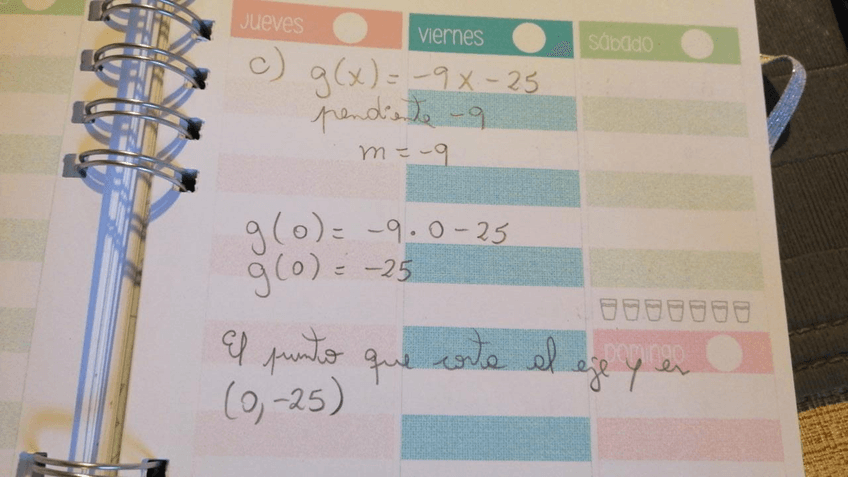 jueves
viernes
sábado
c) g(x) = -9x - 25
pendiente -9
m = -9
g(0) = -9 · 0 - 25
g(0) = -25
DOMINGO
El punto que corta el eje y es
(0, -25)